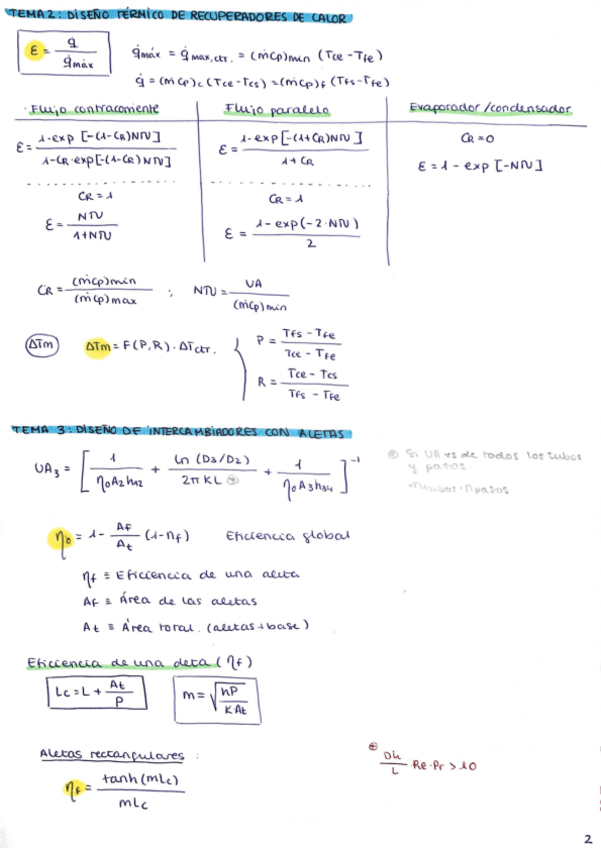 TEMA 2: DISEÑO TÉRMICO DE RECUPERADORES DE CALOR
ε = q̇ / q̇máx
q̇máx = q̇max,ctr. = (ṁcp)min (Tce - Tfe)
q̇ = (ṁcp)c (Tce - Tcs) = (ṁcp)f (Tfs - Tfe)
Flujo contracorriente
Flujo paralelo
Evaporador/condensador
ε = 1-exp[-(1-CR)NTU] / 1-CR·exp[-(1-CR)NTU]
ε = 1-exp[-(1+CR)NTU] / 1+CR
CR = 0
ε = 1 - exp[-NTU]
CR = 1
CR = 1
ε = NTU / 1+NTU
ε = 1-exp(-2·NTU) / 2
CR = (ṁcp)min / (ṁcp)max ; NTU = UA / (ṁcp)min
ΔTm
ΔTm = F(P,R)·ΔTctr.
P = Tfs - Tfe / Tce - Tfe
R = Tce - Tcs / Tfs - Tfe
TEMA 3: DISEÑO DE INTERCAMBIADORES CON ALETAS
UA3 = [ 1 / η0A2h12 + ln (D3/D2) / 2πKL + 1 / η0A3h34 ]⁻¹
Si UA es de todos los tubos
y pasos.
·ntubos·npasos
η0 = 1 - Af / At (1-ηf) Eficiencia global
ηf ≡ Eficiencia de una aleta
Af ≡ Área de las aletas
At ≡ Área total. (aletas+base)
Eficiencia de una aleta (ηf)
Lc = L + At / P
m = √(hP / KAt)
Aletas rectangulares :
ηf = tanh(mLc) / mLc
Dh / L · Re·Pr > 10
2